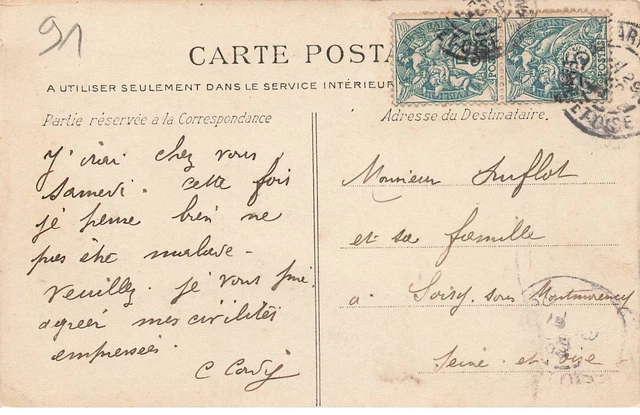 91
CARTE POSTA
A UTILISER SEULEMENT DANS LE SERVICE INTÉRIEUR
Partie réservée a la Correspondance
J'irai chez vous
Samedi. cette fois
je pense bien ne
pas être malade -
Veuillez je vous prie
agréer mes civilités
empressées.
Adresse du Destinataire.
Monsieur Suflot
et sa famille
à Soisy sous Montmorency
Seine et oise